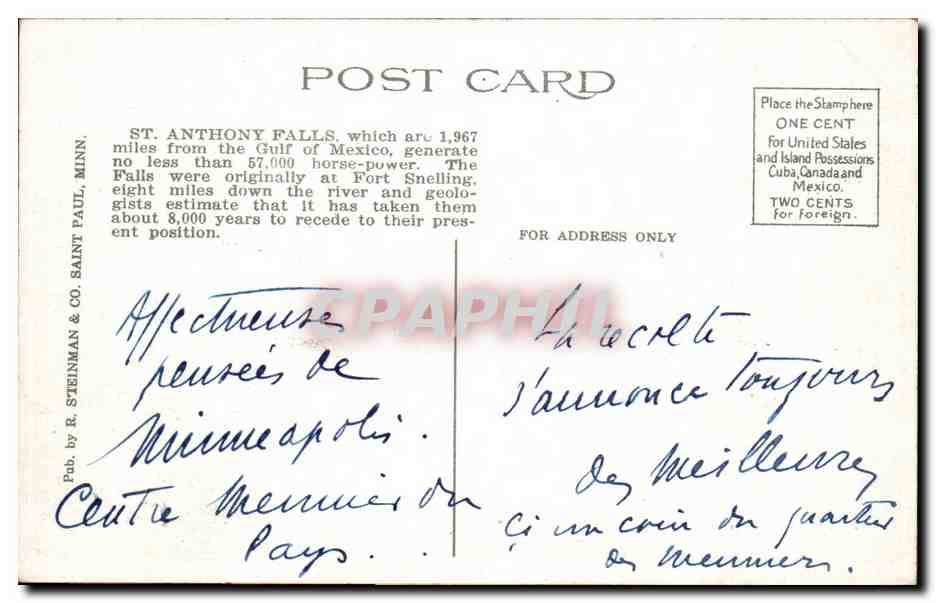 POST CARD
Place the Stamp here
ONE CENT
for United States
and Island Possessions
Cuba, Canada and
Mexico.
TWO CENTS
for foreign.
ST. ANTHONY FALLS, which are 1,967
miles from the Gulf of Mexico, generate
no less than 57,000 horse-power. The
Falls were originally at Fort Snelling,
eight miles down the river and geolo-
gists estimate that it has taken them
about 8,000 years to recede to their pres-
ent position.
FOR ADDRESS ONLY
Pub. by R. STEINMAN & CO. SAINT PAUL, MINN.
CPAPHIL
Affectueuses
pensées de
Minneapolis.
Centre Meunier du
Pays...
La récolte
s'annonce Toujours
des Meilleures
Ci un coin du quartier
des Meuniers.